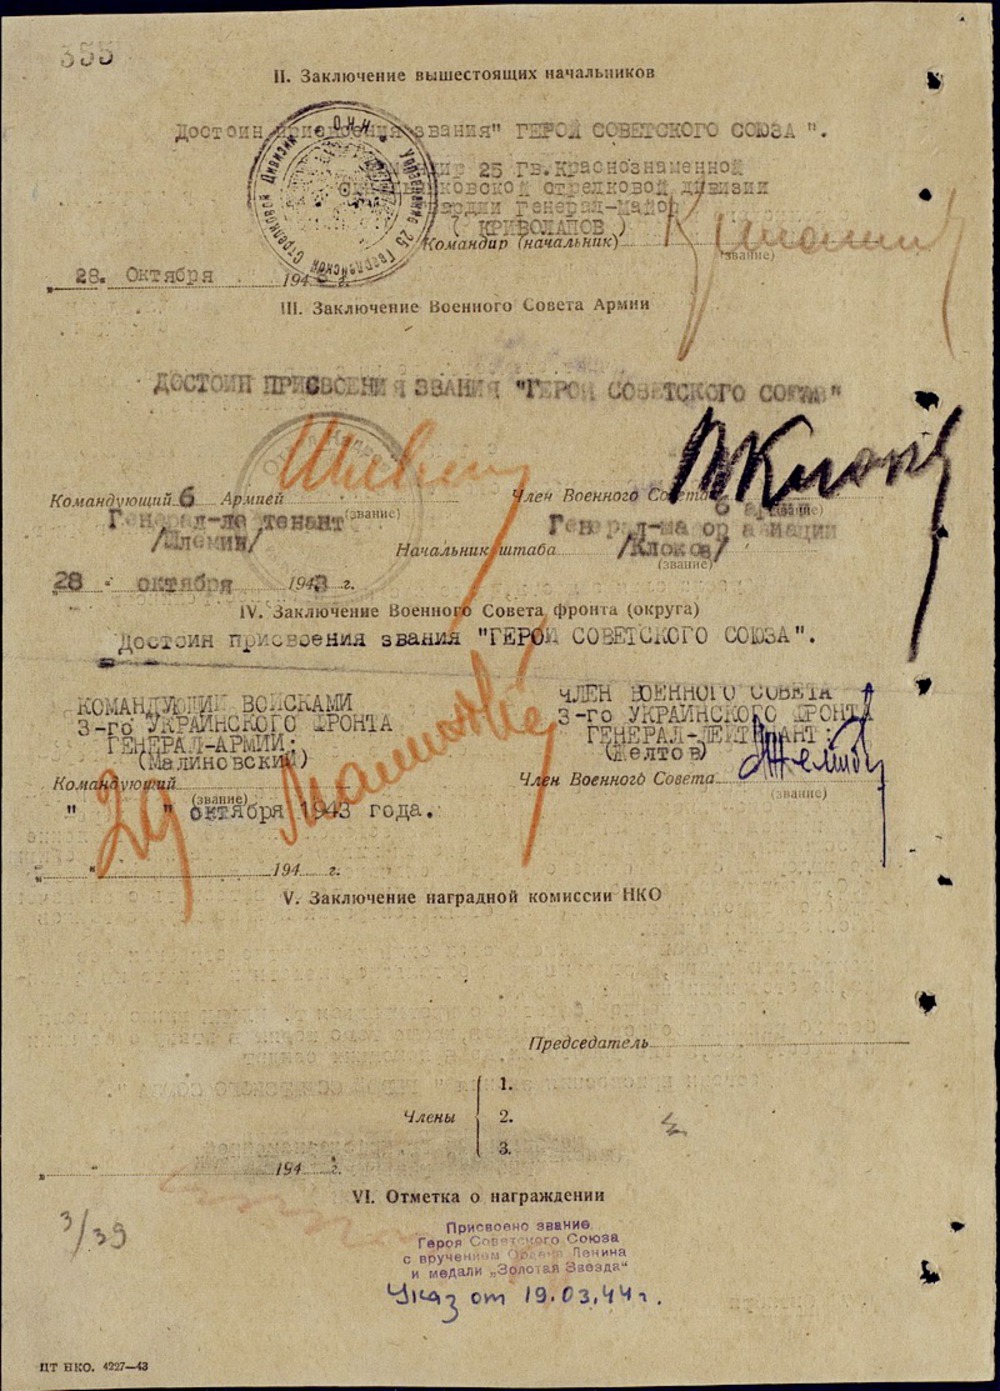 355
II. Заключение вышестоящих начальников
Достоин присвоения звания" ГЕРОЙ СОВЕТСКОГО СОЮЗА ".
НКО * Управление 25 Гвардейской Стрелковой Дивизии
Командир 25 Гв.Краснознаменной
Синельниковской стрелковой дивизии
гвардии генерал-майор
( КРИВОЛАПОВ )
Командир (начальник)
(звание)
28. Октября 1943 г.
III. Заключение Военного Совета Армии
ДОСТОИН ПРИСВОЕНИЯ ЗВАНИЯ "ГЕРОЙ СОВЕТСКОГО СОЮЗА"
Командующий 6 Армией
(звание)
Член Военного Совета
6 армии
(звание)
Генерал-лейтенант
/Шлемин/
Генерал-майор авиации
/Клоков/
Начальник штаба
(звание)
28 " октября 1943 г.
IV. Заключение Военного Совета фронта (округа)
Достоин присвоения звания "ГЕРОЙ СОВЕТСКОГО СОЮЗА".
КОМАНДУЮЩИЙ ВОЙСКАМИ
3-го УКРАИНСКОГО ФРОНТА
ГЕНЕРАЛ-АРМИИ:
(Малиновский)
ЧЛЕН ВОЕННОГО СОВЕТА
3-го УКРАИНСКОГО ФРОНТА
ГЕНЕРАЛ-ЛЕЙТЕНАНТ:
(Желтов)
Командующий
(звание)
Член Военного Совета
(звание)
" 29 " октября 1943 года.
" " 194 г.
V. Заключение наградной комиссии НКО
Председатель
Члены
1.
2.
3.
" " 194 г.
VI. Отметка о награждении
3/39
Присвоено звание
Героя Советского Союза
с вручением Ордена Ленина
и медали „Золотая Звезда"
Указ от 19.03.44г.
ЦТ НКО. 4227—43